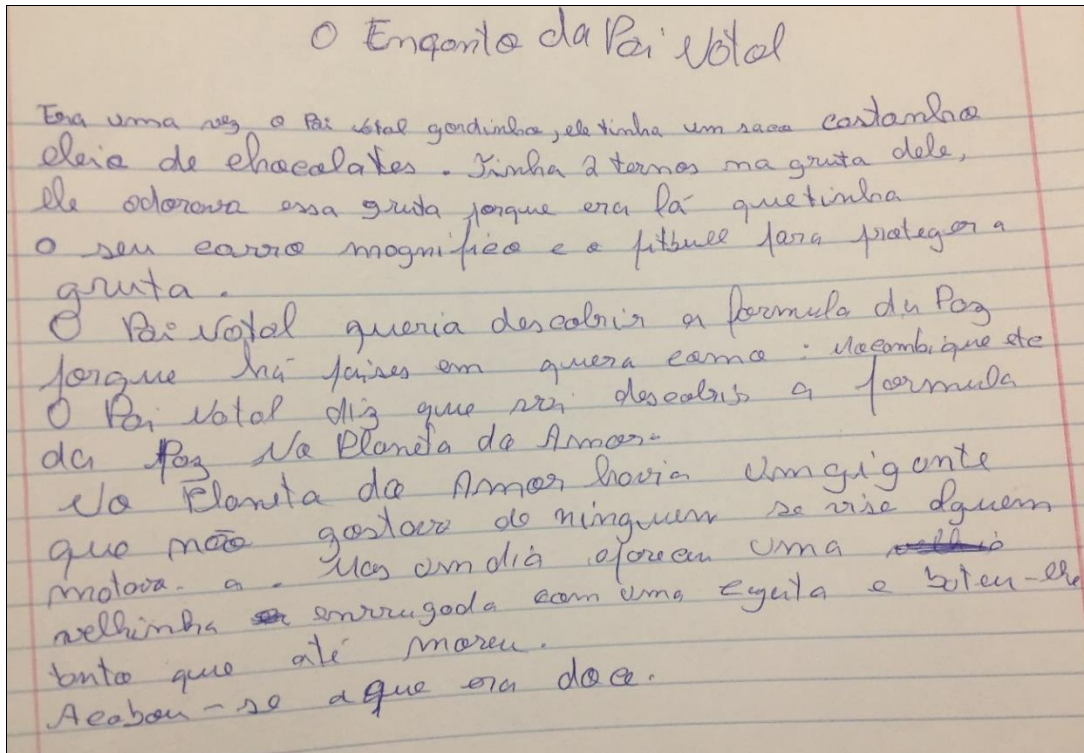 O Enganto da Pai Natal
Era uma vez o Pai Natal gordinho, ele tinha um saco castanho
cleio de chocolates. Tinha 2 ternos na gruta dele,
ele adorava essa gruta porque era lá quetinha
o seu carro magnifico e o pitbull para proteger a
gruta.
O Pai Natal queria descobrir a formula da Paz
porque há paises em guera como : Mocambique etc
O Pai Natal diz que vai descobrir a formula
da Paz No Planeta do Amor.
No Planeta do Amor havia umgigante
que não gostava de ninguem se vise alguem
matava-a. Mas um dia apareceu uma
velhinha enrrugada com uma e bateu-lhe
tanto que até moreu.
Acabou-se o que era doce.